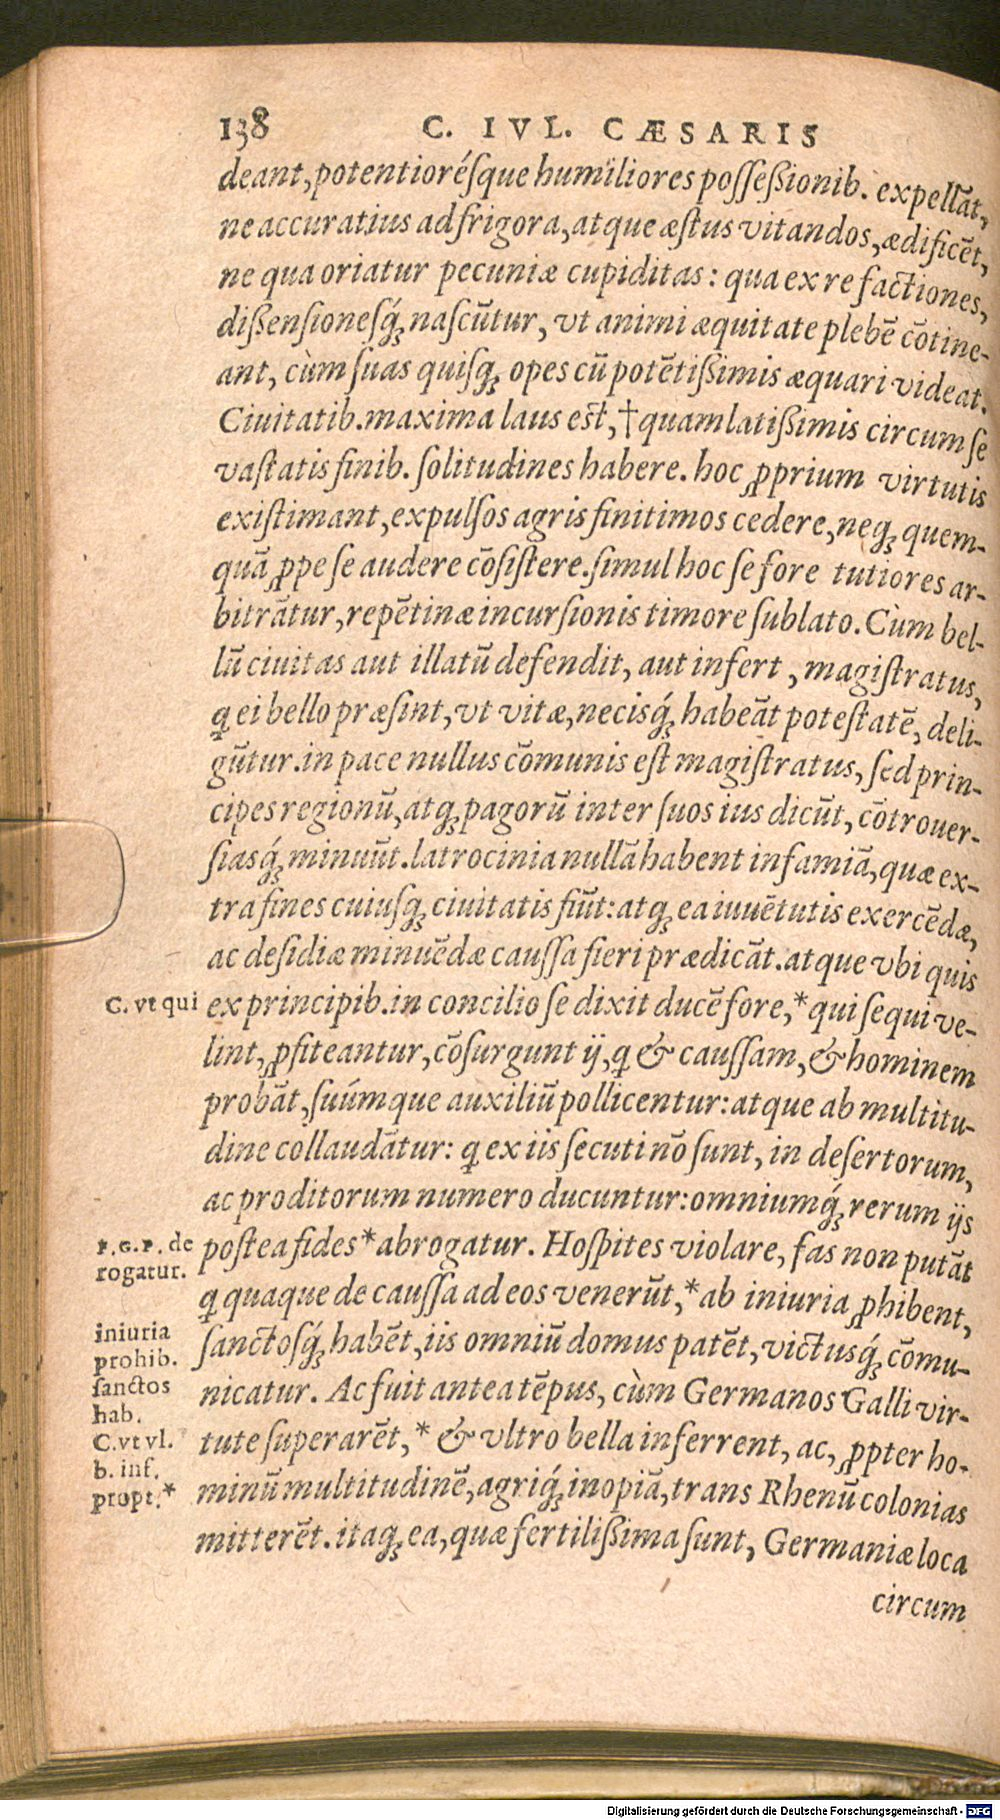 138 C. IVL. CÆSARIS
deant, potentiorésque humiliores possessionib. expellāt,
ne accuratius ad frigora, atque æstus vitandos, ædificēt,
ne qua oriatur pecuniæ cupiditas: qua ex re factiones,
dissensionesq́; nascūtur, vt animi æquitate plebē cōtine-
ant, cùm suas quisq; opes cū potētissimis æquari videat.
Ciuitatib. maxima laus est, †quam latissimis circum se
vastatis finib. solitudines habere. hoc ꝓprium virtutis
existimant, expulsos agris finitimos cedere, neq; quem-
quā ꝓpe se audere cōsistere. simul hoc se fore tutiores ar-
bitrātur, repētinæ incursionis timore sublato. Cùm bel-
lū ciuitas aut illatū defendit, aut infert, magistratus,
ꝗ ei bello præsint, vt vitæ, necisq́; habeāt potestatē, deli-
gūtur. in pace nullus cōmunis est magistratus, sed prin-
cipes regionū, atq; pagorū inter suos ius dicūt, cōtrouer-
siasq́; minuūt. latrocinia nullā habent infamiā, quæ ex-
tra fines cuiusq; ciuitatis fiūt: atq; ea iuuētutis exercēdæ,
ac desidiæ minuēdæ caussa fieri prædicāt. atque vbi quis
C. vt qui
ex principib. in concilio se dixit ducē fore, *qui sequi ve-
lint, ꝓfiteantur, cōsurgunt ij, ꝗ & caussam, & hominem
probāt, suúmque auxiliū pollicentur: atque ab multitu-
dine collaudātur: ꝗ ex iis secuti nō sunt, in desertorum,
ac proditorum numero ducuntur: omniumq́; rerum ijs
P.G.P. de
rogatur.
postea fides *abrogatur. Hospites violare, fas non putāt
ꝗ quaque de caussa ad eos venerūt, *ab iniuria ꝓhibent,
iniuria
prohib.
sanctos
hab.
C. vt vl.
b. inf.
propt.*
sanctosq́; habēt, iis omniū domus patēt, victusq́; cōmu-
nicatur. Ac fuit antea tēpus, cùm Germanos Galli vir-
tute superarēt, * & vltro bella inferrent, ac, ꝓpter ho-
minū multitudinē, agriq́; inopiā, trans Rhenū colonias
mitterēt. itaq; ea, quæ fertilissima sunt, Germaniæ loca
circum
Digitalisierung gefördert durch die Deutsche Forschungsgemeinschaft - DFG